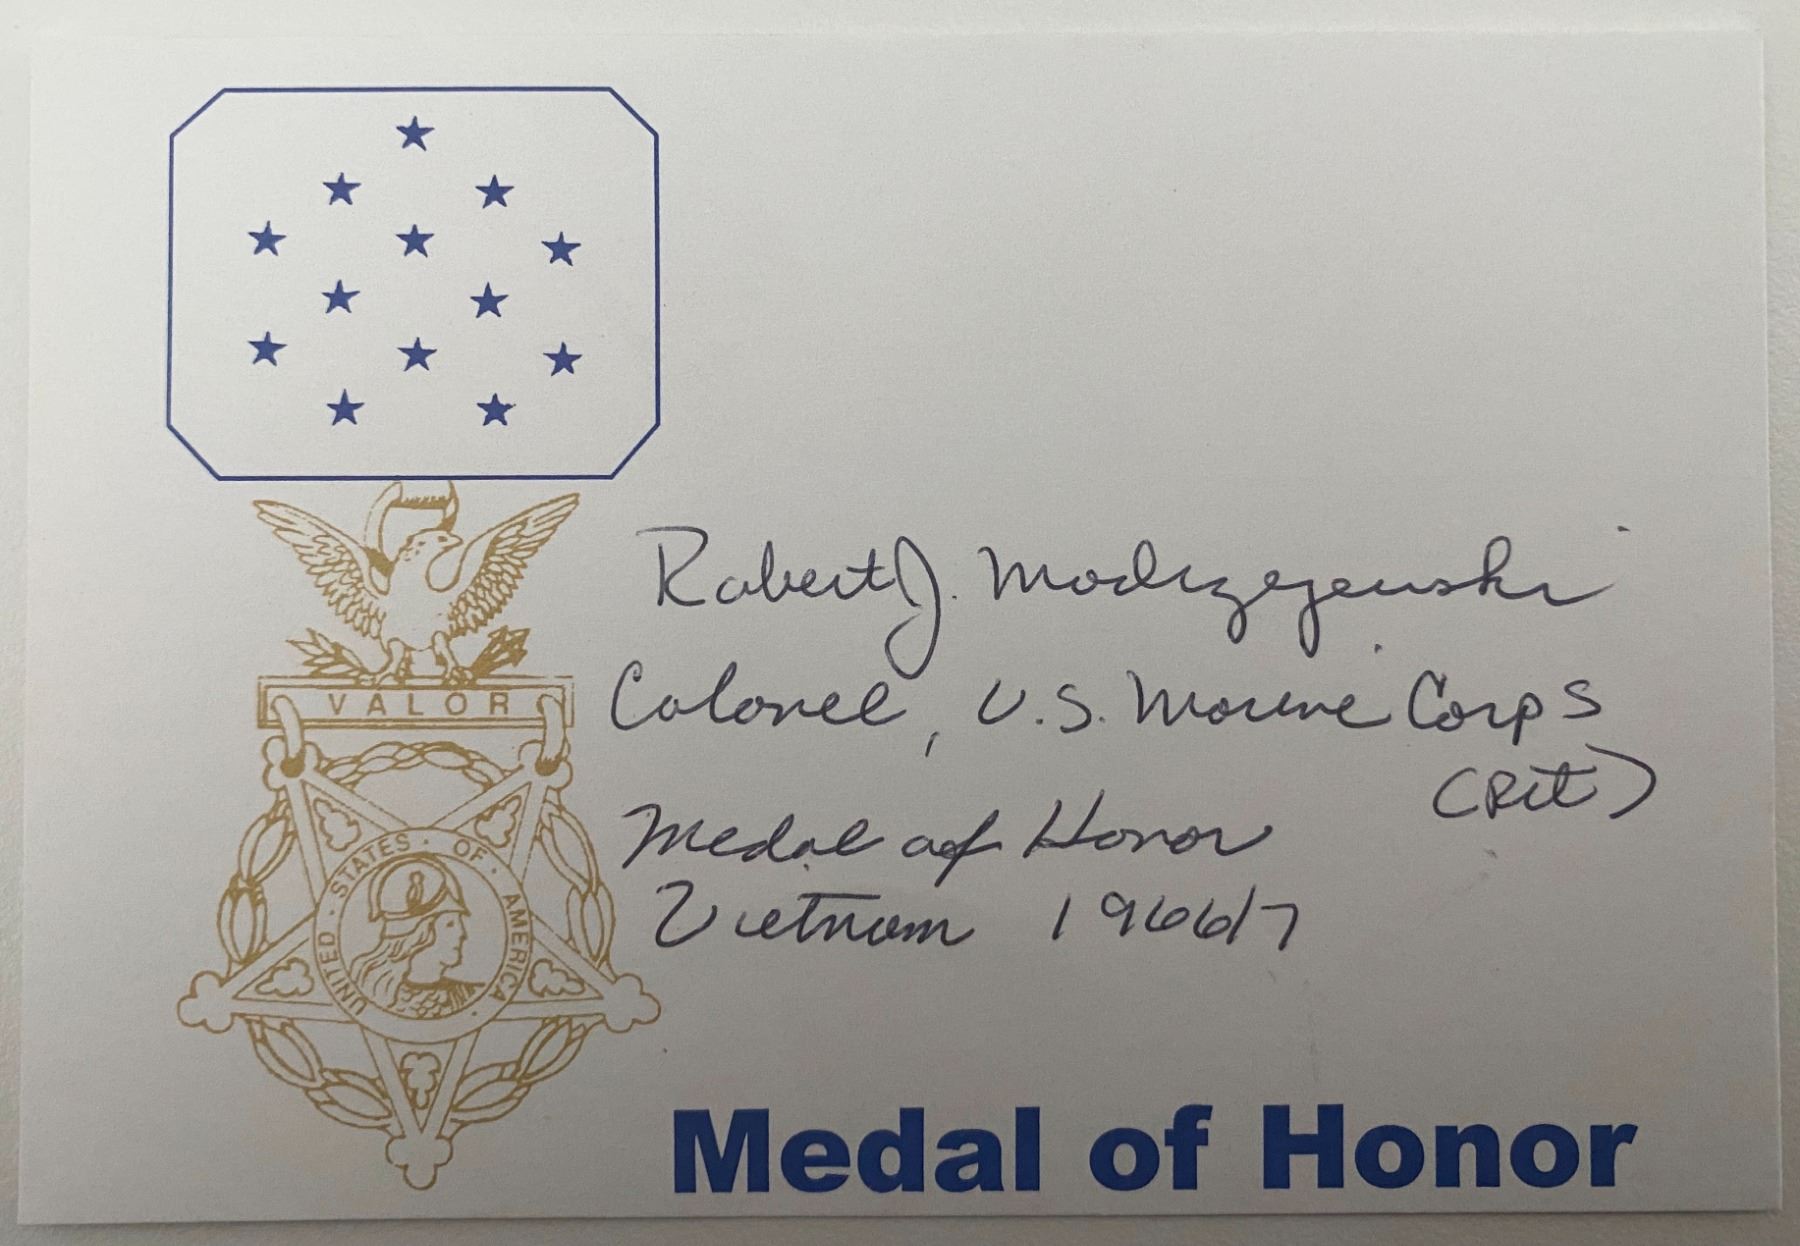 VALOR
UNITED · STATES · OF · AMERICA
Robert J. Modrzejewski
Colonel, U.S. Marine Corps
(Ret)
Medal of Honor
Vietnam 1966/7
Medal of Honor